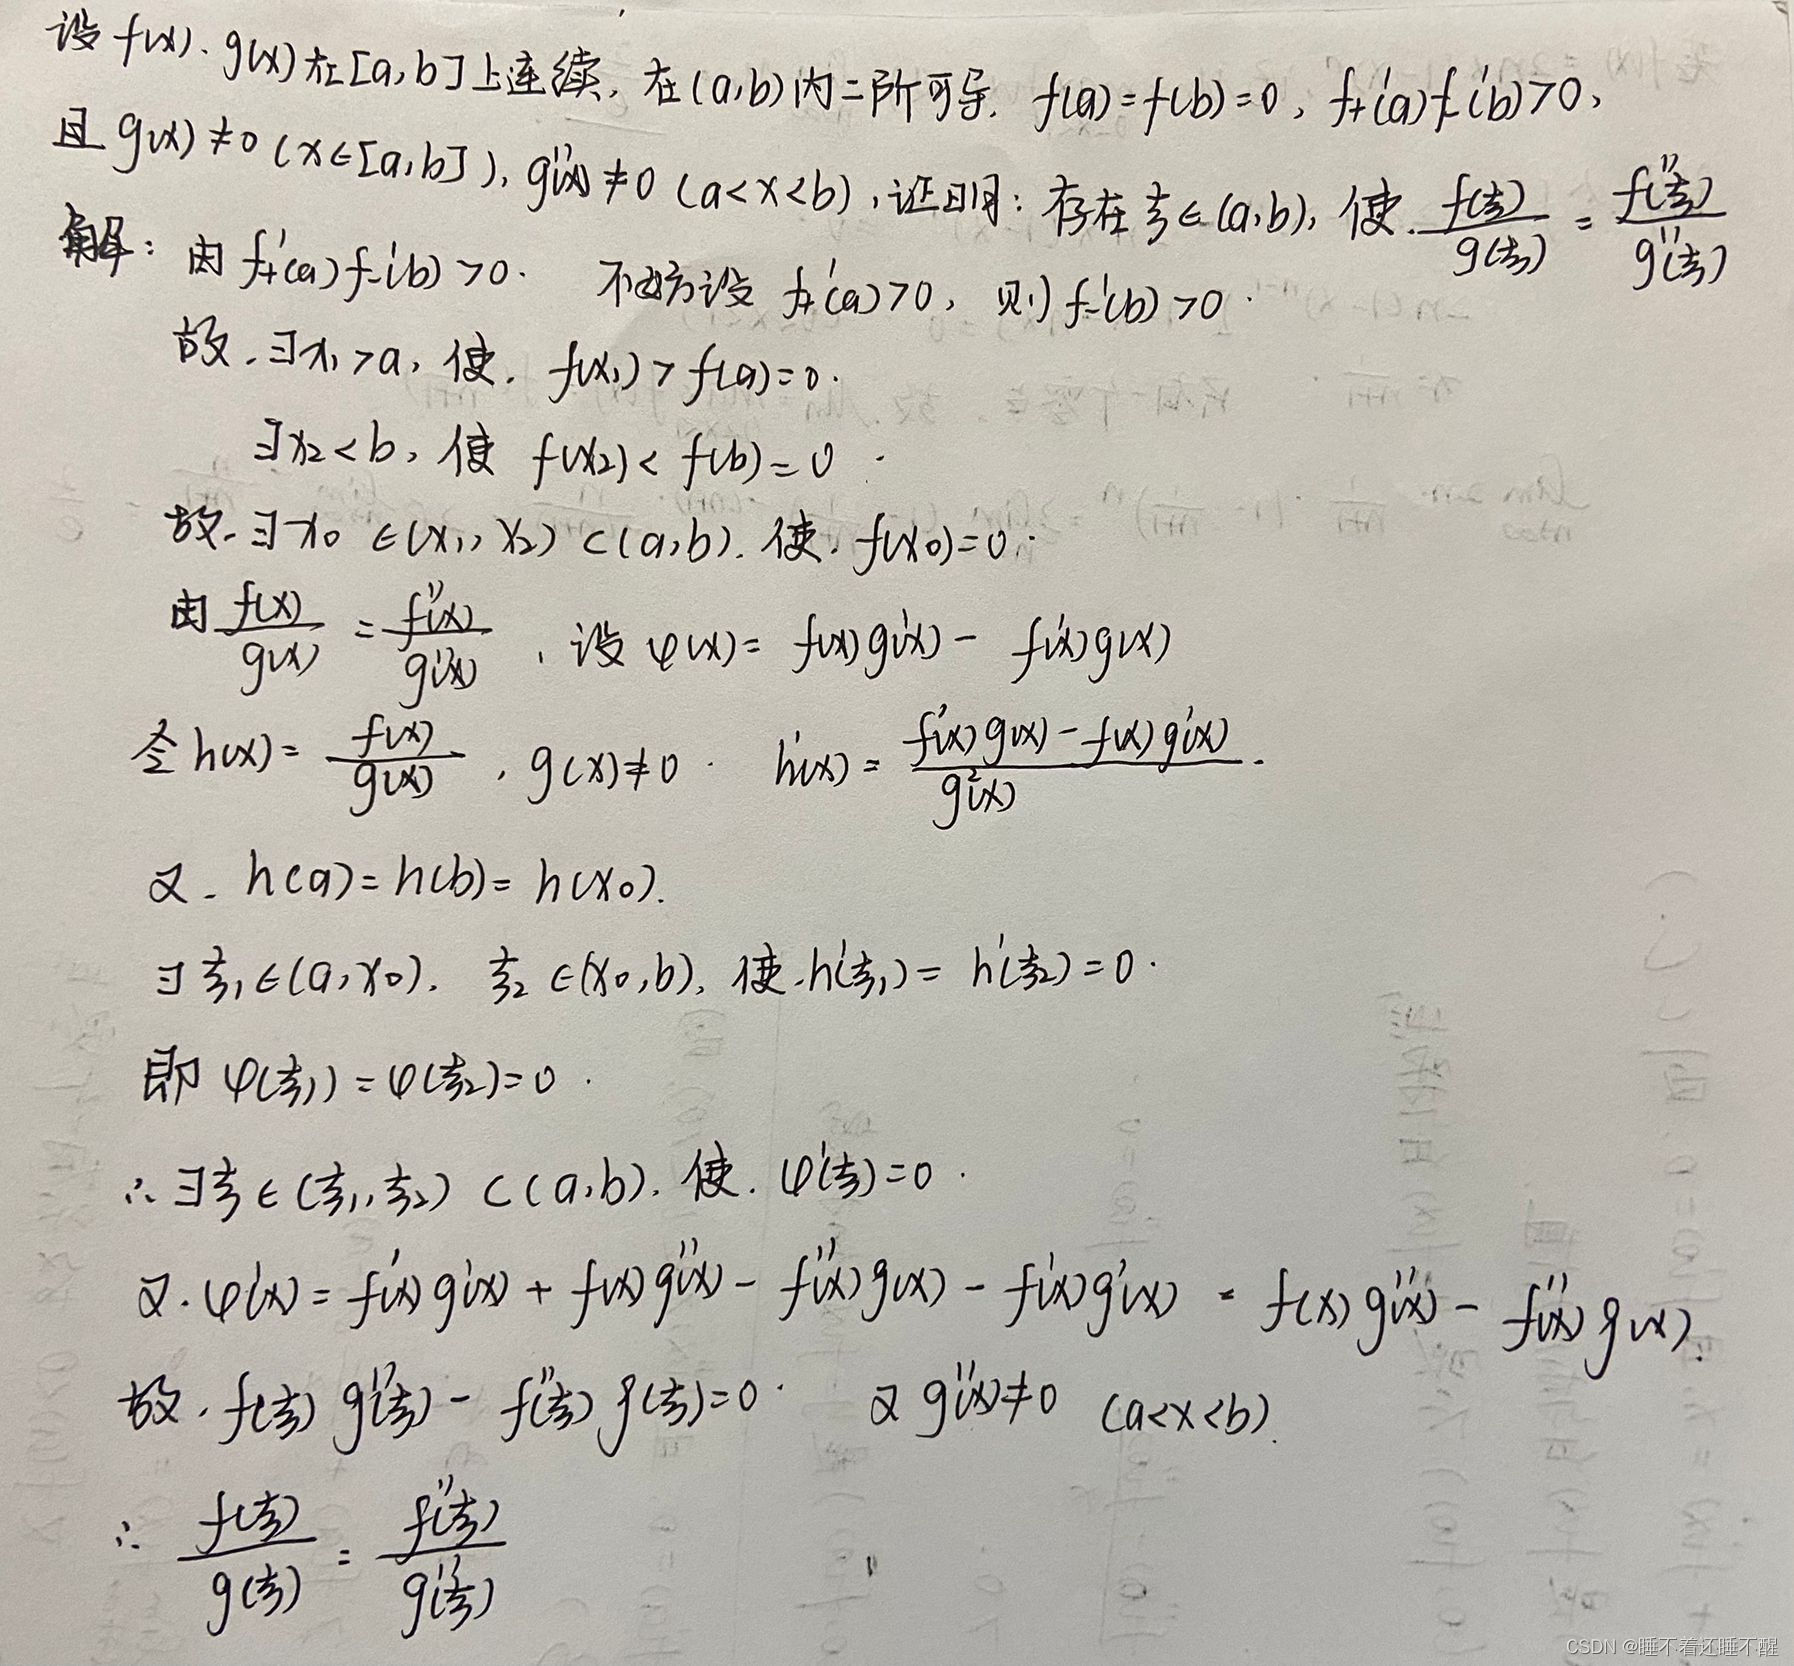 设 f(x)、g(x)在[a,b]上连续,在(a,b)内二阶可导. f(a)=f(b)=0, f₊'(a)f₋'(b)>0,
且 g(x)≠0 (x∈[a,b]), g''(x)≠0 (a<x<b),证明:存在ξ∈(a,b),使. f(ξ)/g(ξ) = f''(ξ)/g''(ξ)
解: 由 f₊'(a)f₋'(b)>0. 不妨设 f₊'(a)>0, 则 f₋'(b)>0.
故.∃x₁>a, 使. f(x₁)>f(a)=0.
∃x₂<b, 使 f(x₂)<f(b)=0.
故.∃x₀∈(x₁,x₂)⊂(a,b).使. f(x₀)=0.
由 f(x)/g(x) = f''(x)/g''(x) , 设 φ(x)= f(x)g'(x)- f'(x)g(x)
令h(x)= f(x)/g(x) , g(x)≠0. h'(x)= (f'(x)g(x)-f(x)g'(x))/g²(x).
又. h(a)=h(b)=h(x₀).
∃ξ₁∈(a,x₀). ξ₂∈(x₀,b), 使.h'(ξ₁)= h'(ξ₂)=0.
即 φ(ξ₁)=φ(ξ₂)=0.
∴∃ξ∈(ξ₁,ξ₂)⊂(a,b).使. φ'(ξ)=0.
又.φ'(x)=f'(x)g'(x)+f(x)g''(x)-f''(x)g(x)-f'(x)g'(x) = f(x)g''(x)-f''(x)g(x).
故.f(ξ)g''(ξ)-f''(ξ)g(ξ)=0. 又g''(x)≠0 (a<x<b).
∴ f(ξ)/g(ξ) = f''(ξ)/g''(ξ)
CSDN @睡不着还睡不醒